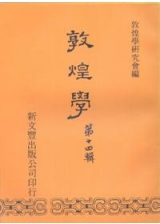 敦煌學研究會編
敦煌學
第十四輯
新文豐出版公司印行